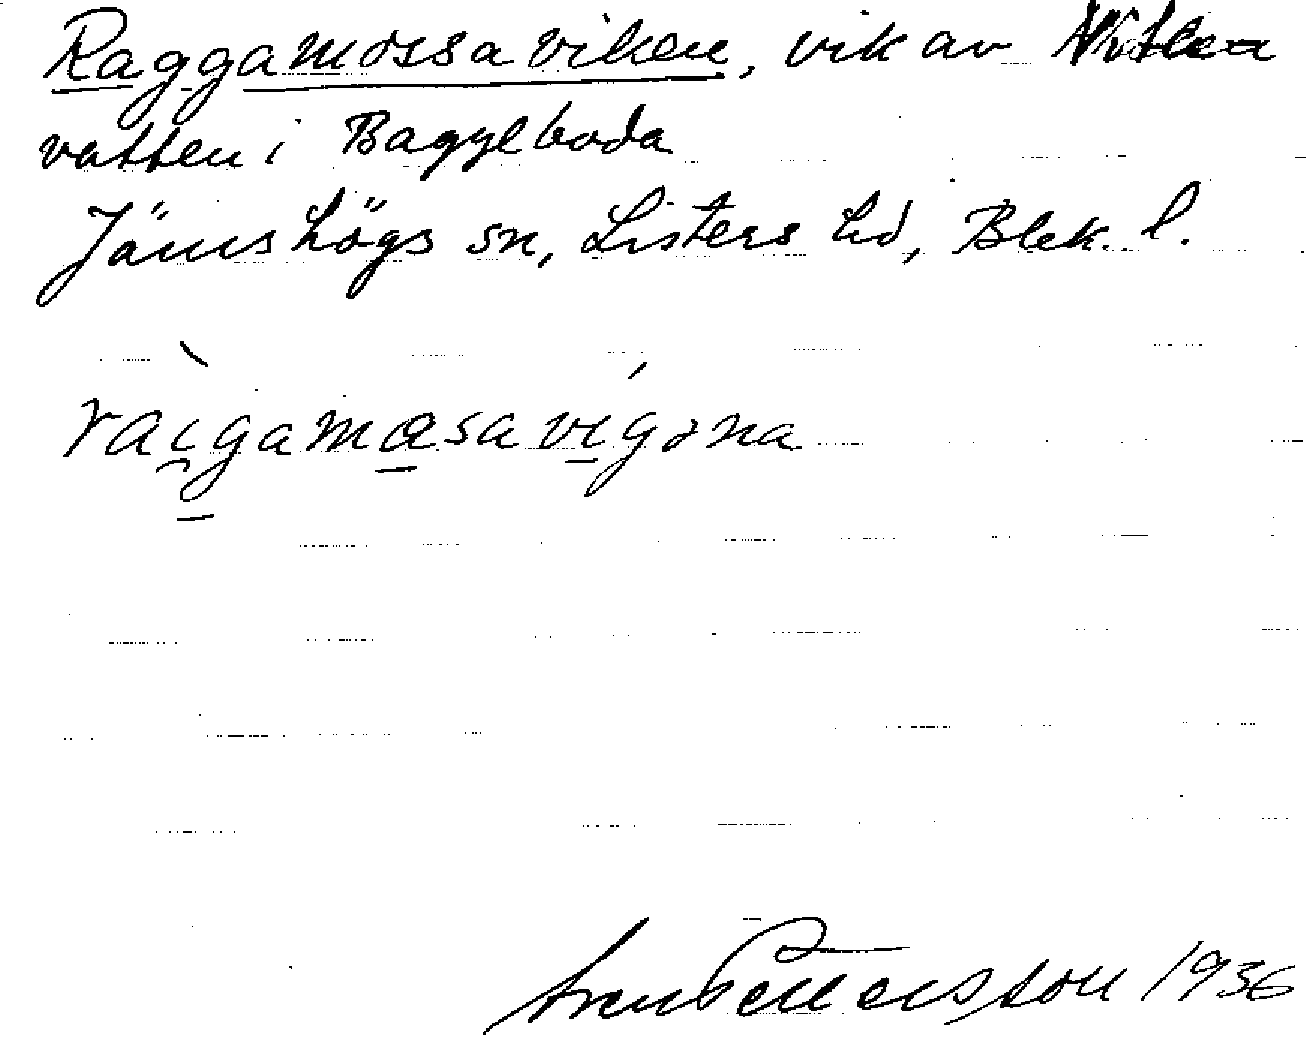 Raggamossaviken, vik av
vatten i Baggeboda
Jämshögs sn, Listers hd, Blek. l.
raigamosavigəna
Sven Pettersson 1936